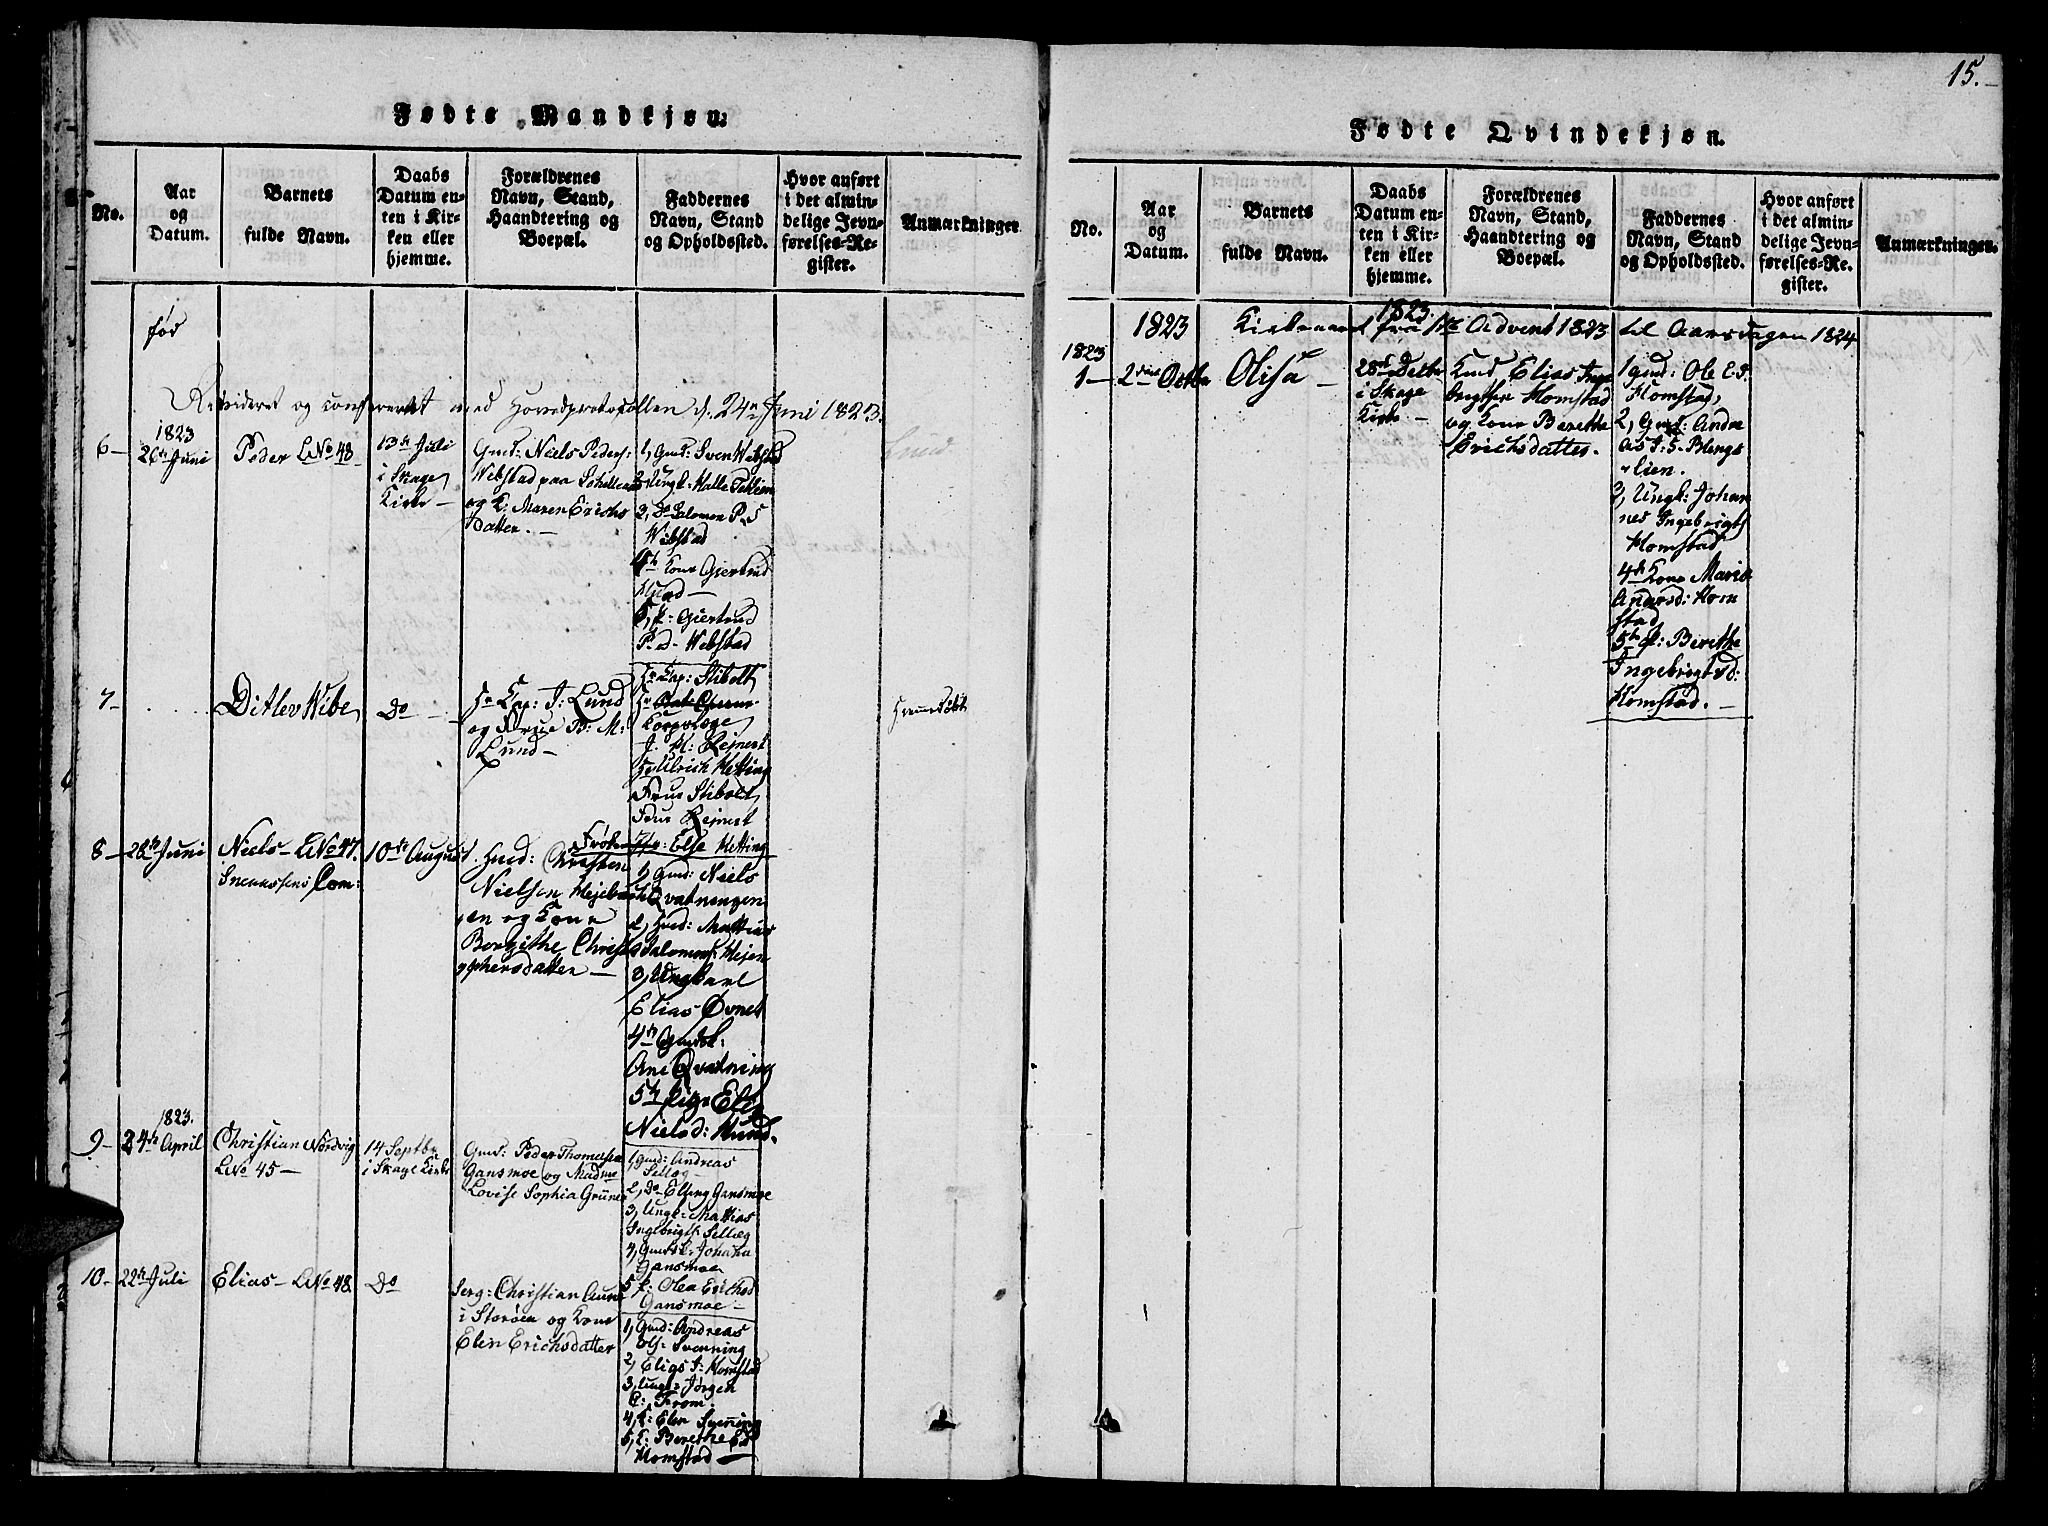 Fødte Mandkjøn.
No.
Aar
og
Datum.
Barnets
fulde Navn.
Daabs
Datum en-
ten i Kir-
ken eller
hjemme.
Forældrenes
Navn, Stand,
Haandtering og
Boepæl.
Faddernes
Navn, Stand
og Opholdssted.
Hvor anført
i det almin-
delige Jevn-
førelses-Re-
gister.
Anmærkninger
før
Revideret og confereret med Hovedprotocollen d. 24de Juni 1823.
6 -
1823
26th Juni
Peder LNo 48
13de Juli
i Skage
Kirke -
Gmd: Niels Peders:
Webstad paa
og K: Maren Erichs
datter. -
1, Gmd: Sven Webstad
2, Ungk: Halle
3, do Salomon P. S
Webstad
4th Kone Gjertrud
5, P: Giertrud
P. d- Webstad
7 -
Ditlev Wibe
do
Hr Cap: J: Lund
og Frue B: M:
Lund -
Hr Cap: Stibolt
Hr
J. H: Rejnert
Hr Ulrich Hetting
Frue Stibolt
Frue Rejnert
Frøken Else Hetting
Hjemmedøbt
8 -
28th Juni
Niels - LNo 47.
10de August
Husd: Christen
Nielsen
og Kone
Borgithe Christo
phersdatter -
1, Gmd: Niels
Qvatningen
2, Husd: Mattias
Salomons:
3, Ungkarl
Elias Øvnet
4th Gmdsk:
Ane Qvatning
5th Pige Elen
Nielsd: Hund.
9 -
1823.
24de April
Christian Nordvig
LNo 45 -
14 Septbr
i Skage Kirke
Gmd: Peder Thomesen
Gansmoe og Madme
Lovise Sophia Grüner
1, Gmd: Andreas
Selleg -
2, do Elling Gansmoe
3, Ungk: Mattias
Ingebrigts: Selleg
4, Gmdsk: Johana
Gansmoe
5 P: Olea Erichsd
Gansmoe -
10 -
22th Juli
Elias - LNo 48
do
Serg: Christian Aune
i Storøen og Kone
Elen Erichsdatter
1, Gmd: Andreas
Ols: Svenning
2, Elias I: Homstad
3, Ungk: Jørgen
C: From.
4, K: Elen Svenning
5, P: Berethe Ed
Homstad -
15.
Fødte Qvindekjøn.
No.
Aar
og
Datum.
Barnets
fulde Navn.
Daabs
Datum en-
ten i Kir-
ken eller
hjemme.
Forældrenes
Navn, Stand,
Haandtering og
Boepæl.
Faddernes
Navn, Stand
og Opholdssted.
Hvor anført
i det almin-
delige Jevn-
førelses-Re-
gister.
Anmærkninger.
1823 Kirkeaaret fra 1ste Advent 1823 til Aarsdagen 1824
1823
1 -
2den Octbr
Olisa -
1823.
28de Decbr
i Skage
Kirke -
Kmd Elias Inge
brigtsen Homstad
og Kone Berethe
Erichsdatter.
1 gmd: Ole E. S.
Homstad,
2, Gmd: Andre
as I: S. Blengs
lien.
3, Ungk: Johan
nes Ingebrigts
Homstad
4th Kone Maria
Andersd: Hom
stad
5th P: Berethe
Ingebrigtsd:
Homstad. -